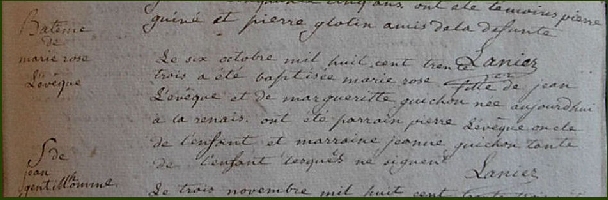 ans ont été témoins pierre
guiné et pierre glotin amis de la defunte
Lanier
Batême
de
marie rose
Lévêque
Le six octobre mil huit cent trente
trois a été baptisée marie rose fille de jean
Lévêque et de margueritte guichon née aujourdhui
à la renais. ont été parrain pierre Lévêque oncle
de l'enfant et marraine jeanne guichon tante
de l'enfant lesquels ne signent
Lanier
S de
jean
Le trois novembre mil huit cent